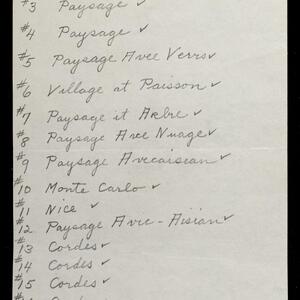 #3 Paysage ✓
#4 Paysage ✓
#5 Paysage Avec Verrs ✓
#6 Village at Paisson ✓
#7 Paysage it Arbre ✓
#8 Paysage Avec Nuage ✓
#9 Paysage Avecaisean ✓
#10 Monte Carlo ✓
#11 Nice ✓
#12 Paysage Avec-Aisian ✓
#13 Cordes ✓
#14 Cordes ✓
#15 Cordes ✓